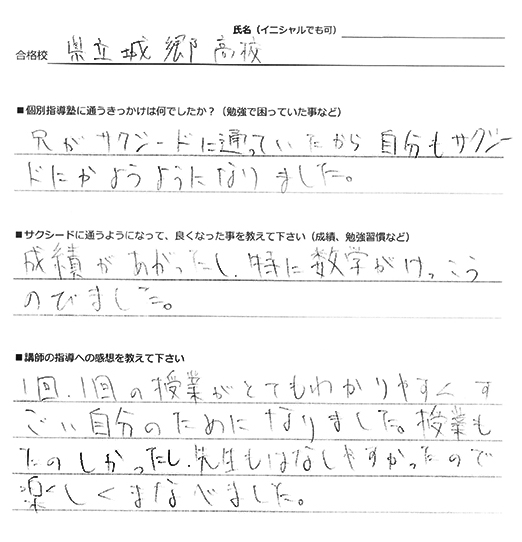 氏名（イニシャルでも可）
合格校 県立城郷高校
■個別指導塾に通うきっかけは何でしたか？（勉強で困っていた事など）
兄がサクシードに通っていたから自分もサクシー
ドにかようようになりました。
■サクシードに通うようになって、良くなった事を教えて下さい（成績、勉強習慣など）
成績があがったし、特に数学がけっこう
のびました。
■講師の指導への感想を教えて下さい
1回、1回の授業がとてもわかりやすくす
ごい自分のためになりました。授業も
たのしかったし、先生もはなしやすかったので
楽しくまなべました。